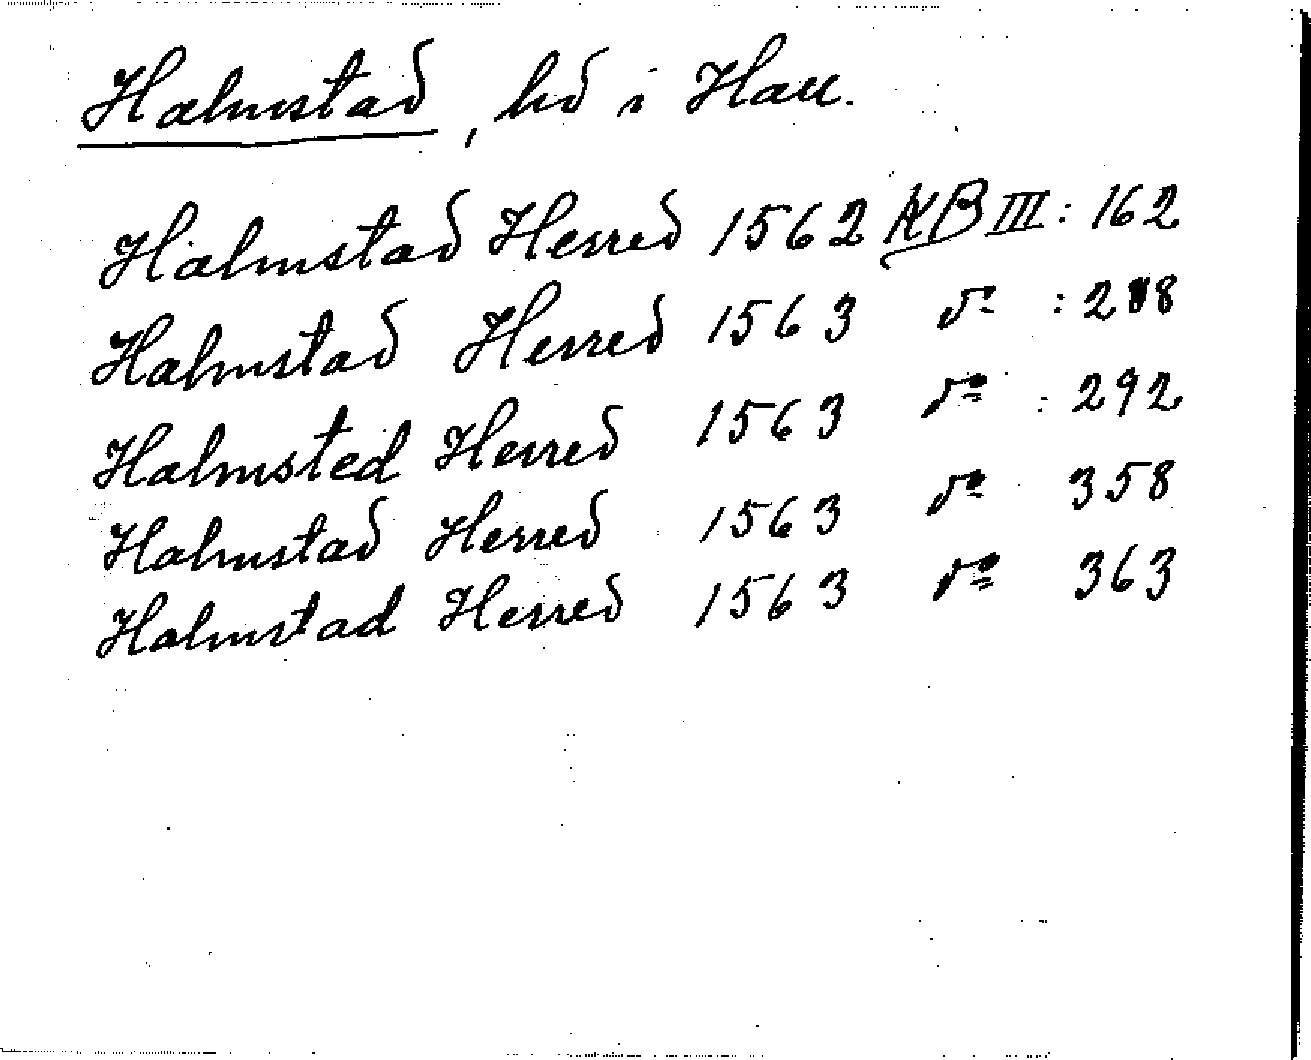 Halmstad, hd i Hall.
Halmstad Herred 1562 KB III: 162
Halmstad Herred 1563 do : 288
Halmsted Herred 1563 do : 292
Halmstad Herred 1563 do 358
Halmstad Herred 1563 do 363